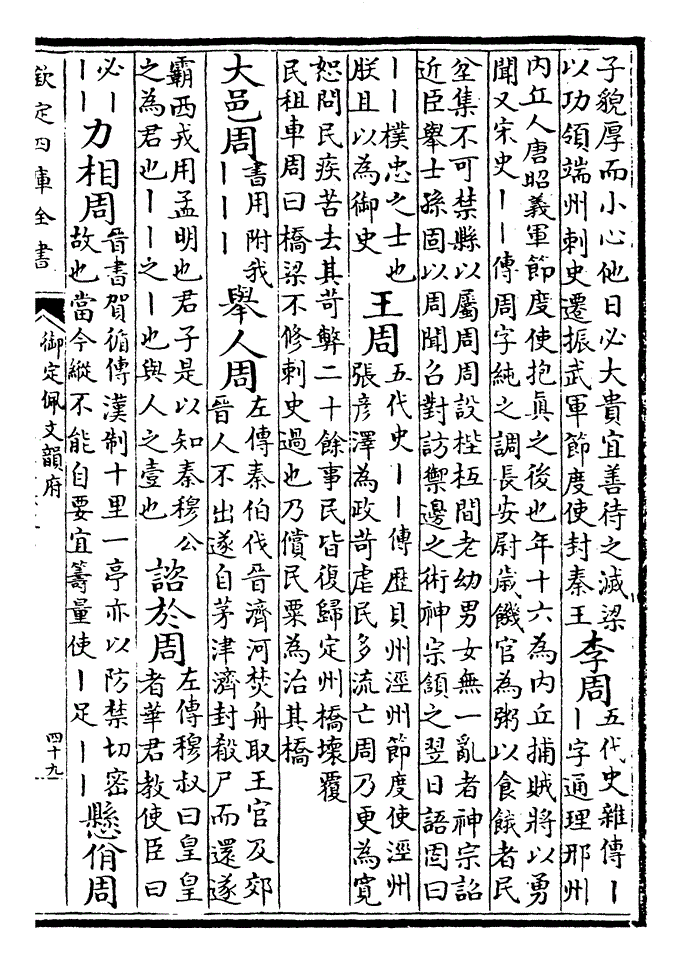 子貌厚而小心他日必大貴宜善待之滅梁
以功領端州刺史遷振武軍節度使封秦王
李周
五代史雜傳丨
丨字通理邢州
内丘人唐昭義軍節度使抱真之後也年十六為内丘捕賊將以勇
聞又宋史丨丨傳周字純之調長安尉嵗饑官為粥以食餓者民
坌集不可禁縣以屬周周設梐枑間老幼男女無一亂者神宗詔
近臣舉士孫固以周聞召對訪禦邊之術神宗頷之翌日語固曰
丨丨樸忠之士也
朕且以為御史
王周
五代史丨丨傳歴貝州涇州節度使涇州
張彦澤為政苛虐民多流亡周乃更為寛
恕問民疾苦去其苛弊二十餘事民皆復歸定州橋壞覆
民租車周曰橋梁不修刺史過也乃償民粟為治其橋
大邑周
書用附我
丨丨丨
舉人周
左傳秦伯伐晉濟河焚舟取王官及郊
晉人不出遂自茅津濟封殽尸而還遂
霸西戎用孟明也君子是以知秦穆公
之為君也丨丨之丨也與人之壹也
諮於周
左傳穆叔曰皇皇
者華君教使臣曰
必丨
丨丨
力相周
晉書賀循傳漢制十里一亭亦以防禁切密
故也當今縱不能自要宜籌量使丨足丨丨
懸佾周
欽定四庫全書
御定佩文韻府
四十九